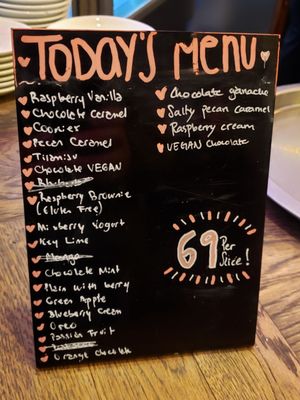 TODAY'S MENU
Raspberry Vanilla
Chocolate Caramel
Cookies
Pecan Caramel
Tiramisu
Chocolate VEGAN
Raspberry Brownie
(Gluten Free)
berry Yogurt
Key Lime
Mango
Chocolate Mint
Plain with berry
Green Apple
Blueberry Cream
Oreo
Passion Fruit
Orange chocolate
Chocolate ganache
Salty pecan caramel
Raspberry cream
VEGAN chocolate
69 Per
Slice!